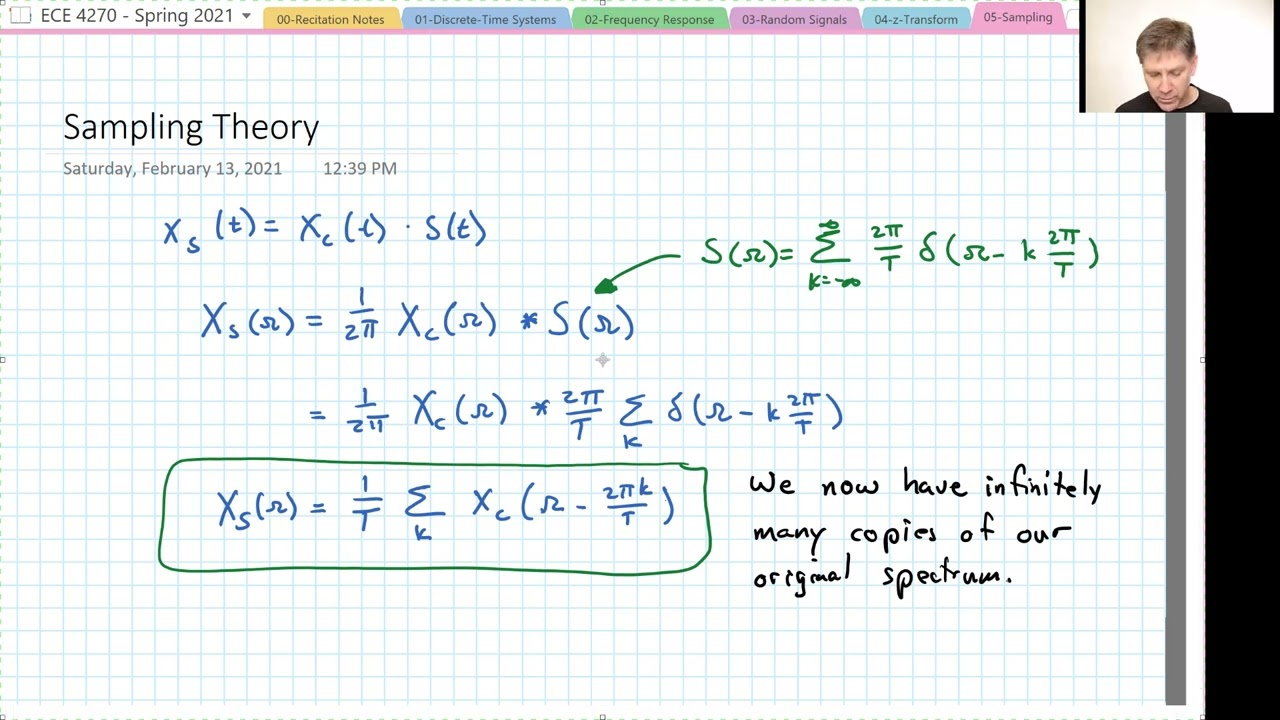 ECE 4270 - Spring 2021
00-Recitation Notes
01-Discrete-Time Systems
02-Frequency Response
03-Random Signals
04-z-Transform
05-Sampling
Sampling Theory
Saturday, February 13, 2021 12:39 PM
x_s(t) = x_c(t) · s(t)
S(Ω) = ∑_{k=-∞}^{∞} 2π/T δ(Ω - k 2π/T)
X_s(Ω) = 1/2π X_c(Ω) * S(Ω)
= 1/2π X_c(Ω) * 2π/T ∑_k δ(Ω - k 2π/T)
X_s(Ω) = 1/T ∑_k X_c(Ω - 2πk/T)
We now have infinitely
many copies of our
original spectrum.